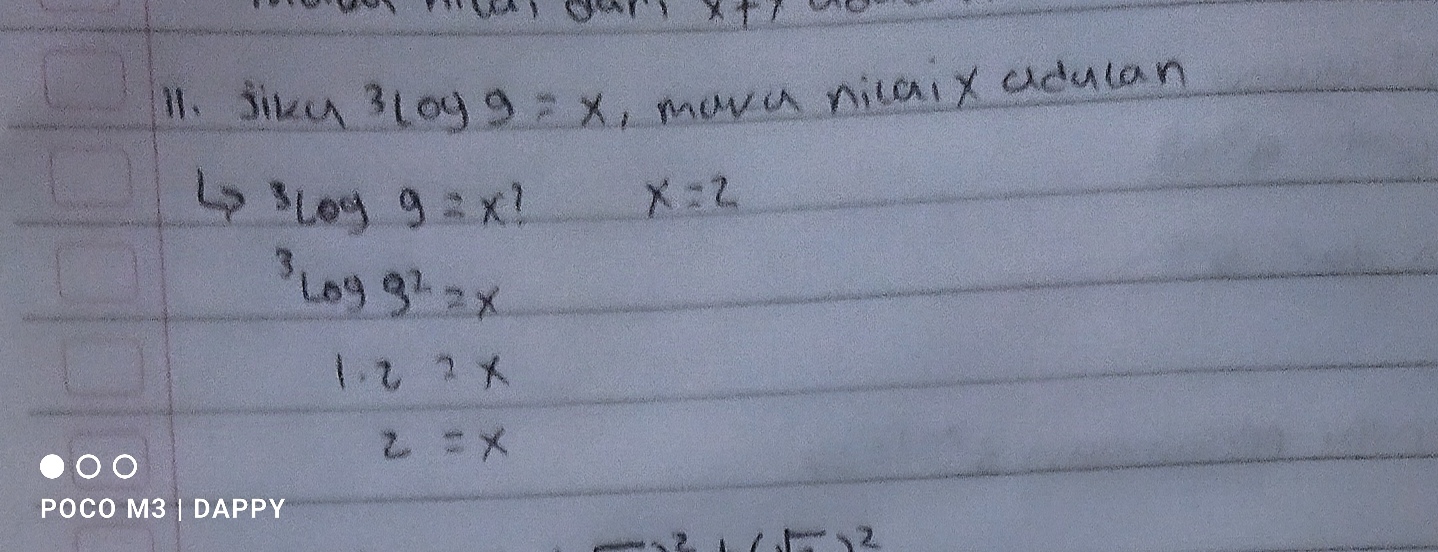 dari x+y
11. Jika ³Log 9 = x, maka nilai x adalah
↳ ³Log 9 = x? x = 2
³Log 3² = x
1.2 = x
2 = x
POCO M3 | DAPPY